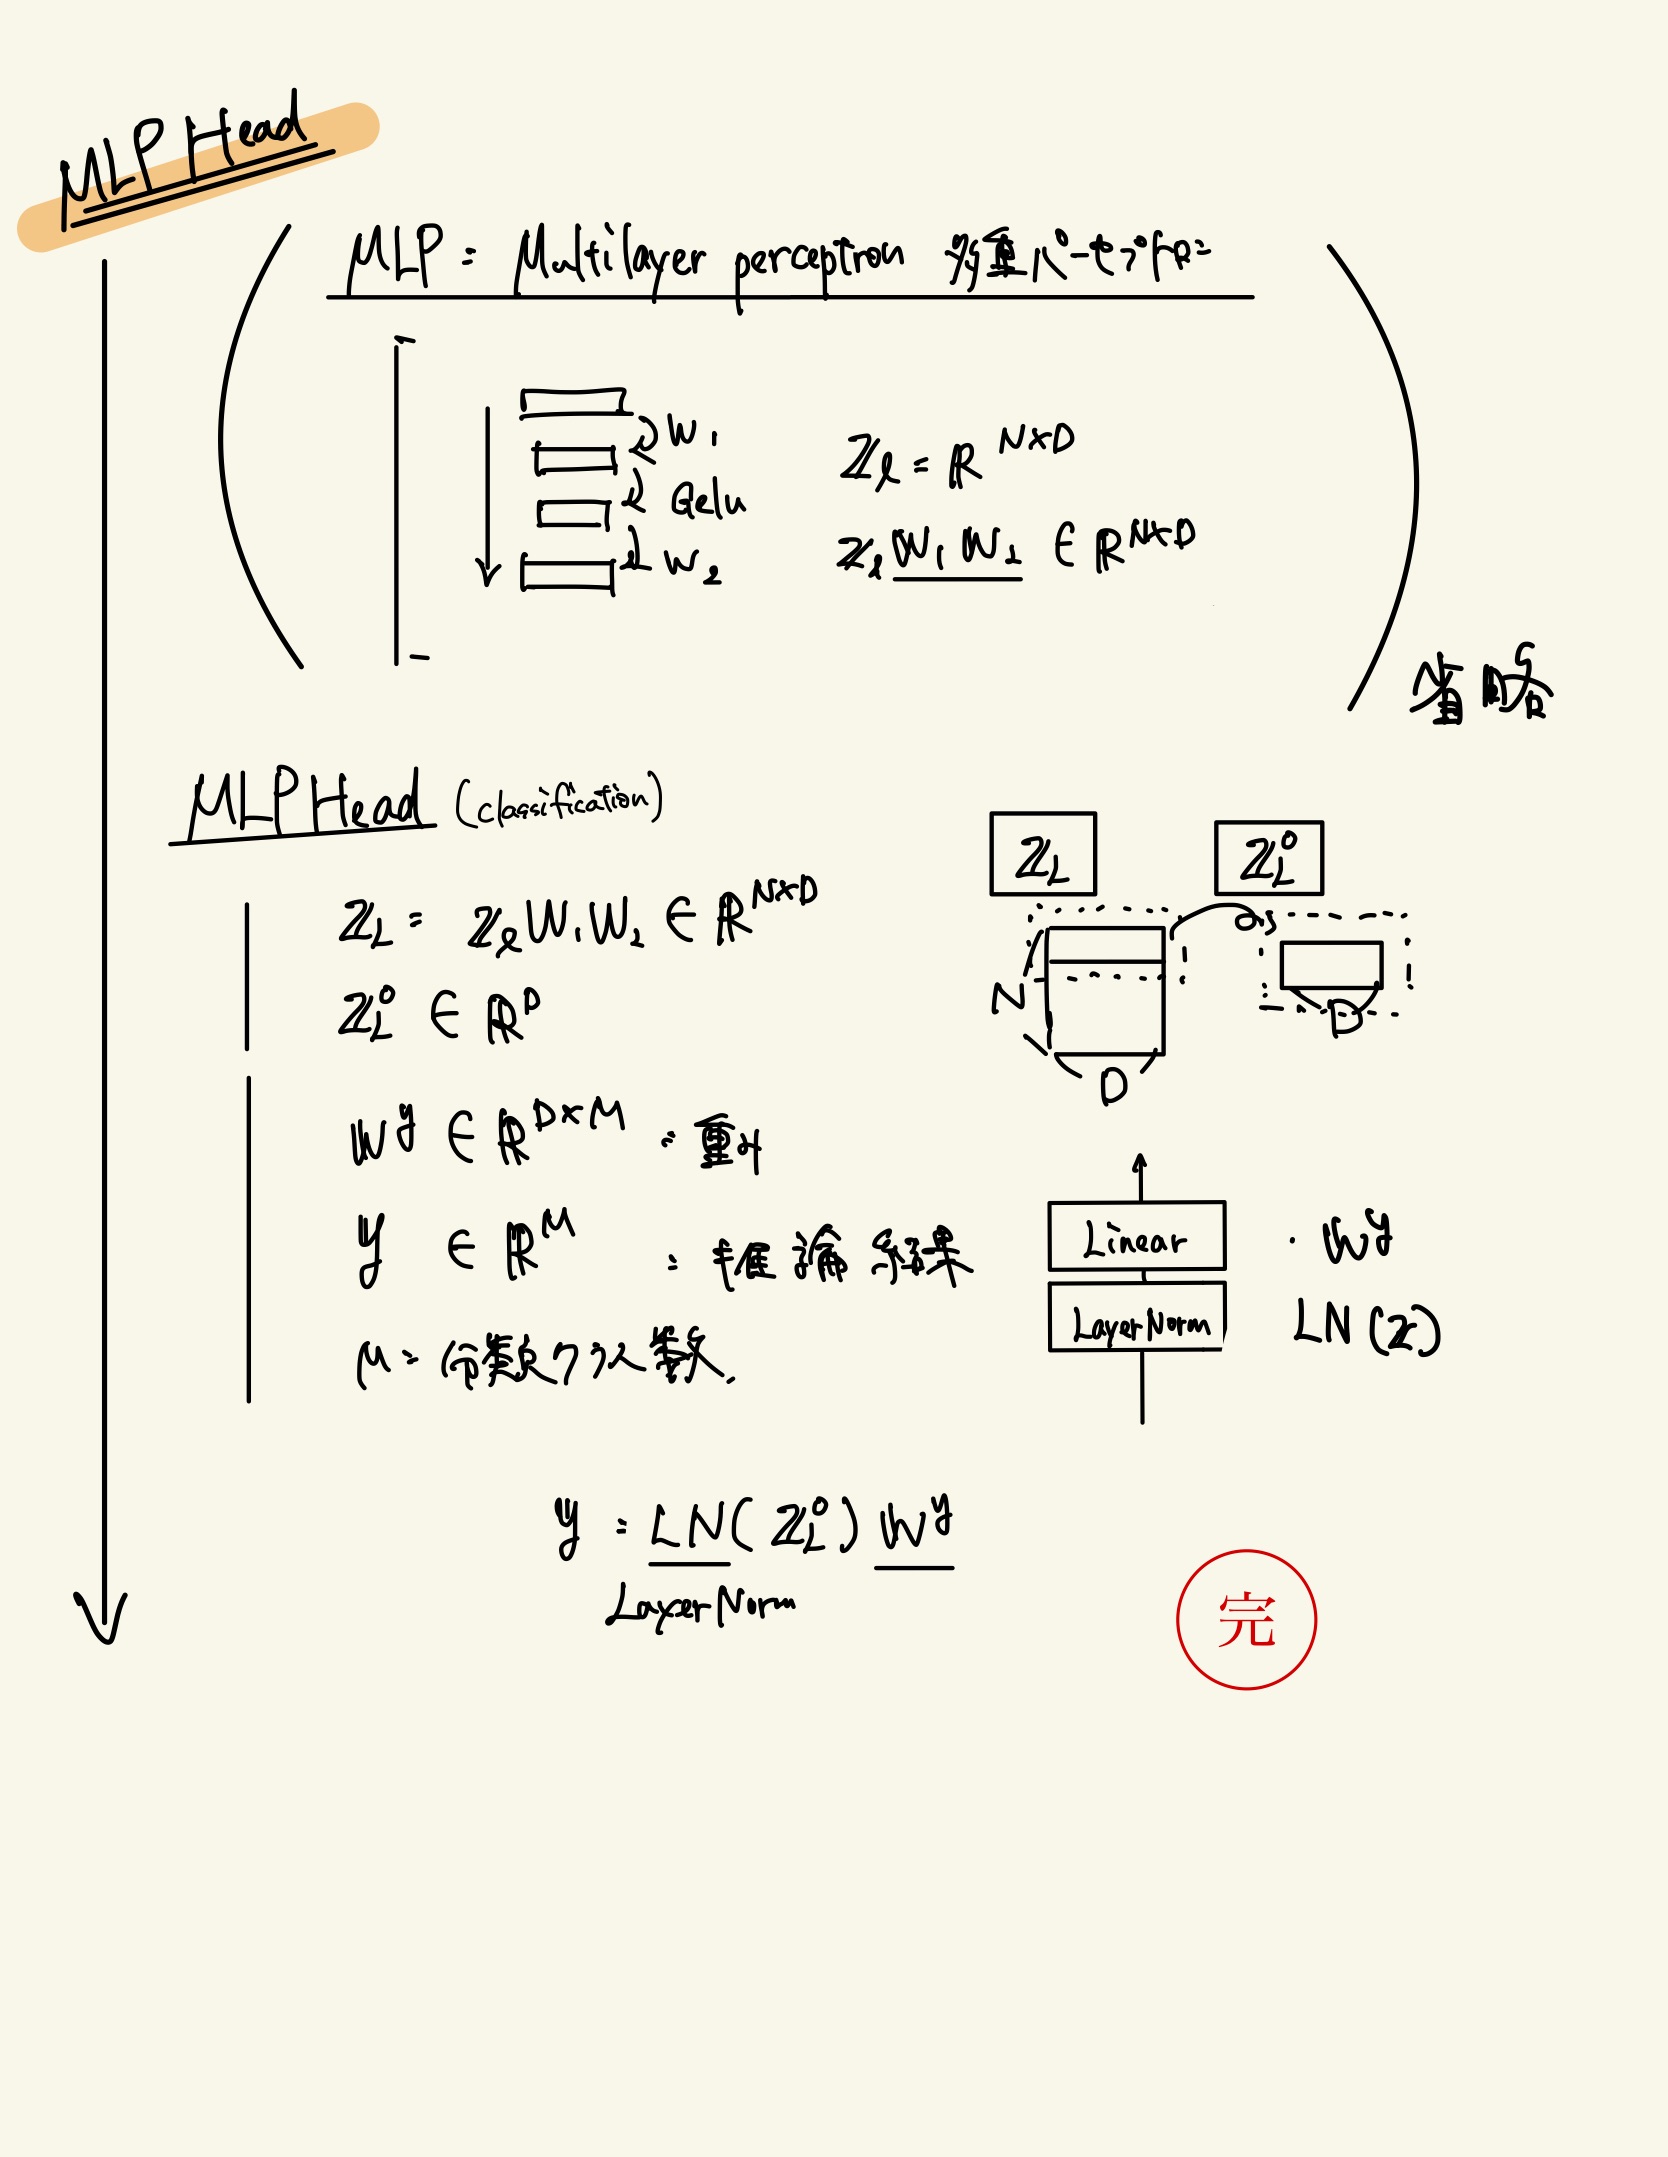 MLP Head
MLP = Multilayer perception 多重パーセプトロン
W1
Gelu
W2
Zℓ = ℝ^N×D
Zℓ W1 W2 ∈ ℝ^N×D
省略
MLP Head (classification)
Z_L = Zℓ W1 W2 ∈ ℝ^N×D
Z_L^0 ∈ ℝ^D
Z_L
Z_L^0
as
N
D
D
W^y ∈ ℝ^D×M : 重み
y ∈ ℝ^M : 推論結果
M = 分類クラス数.
Linear · W^y
LayerNorm LN(Z)
y = LN(Z_L^0) W^y
LayerNorm
完